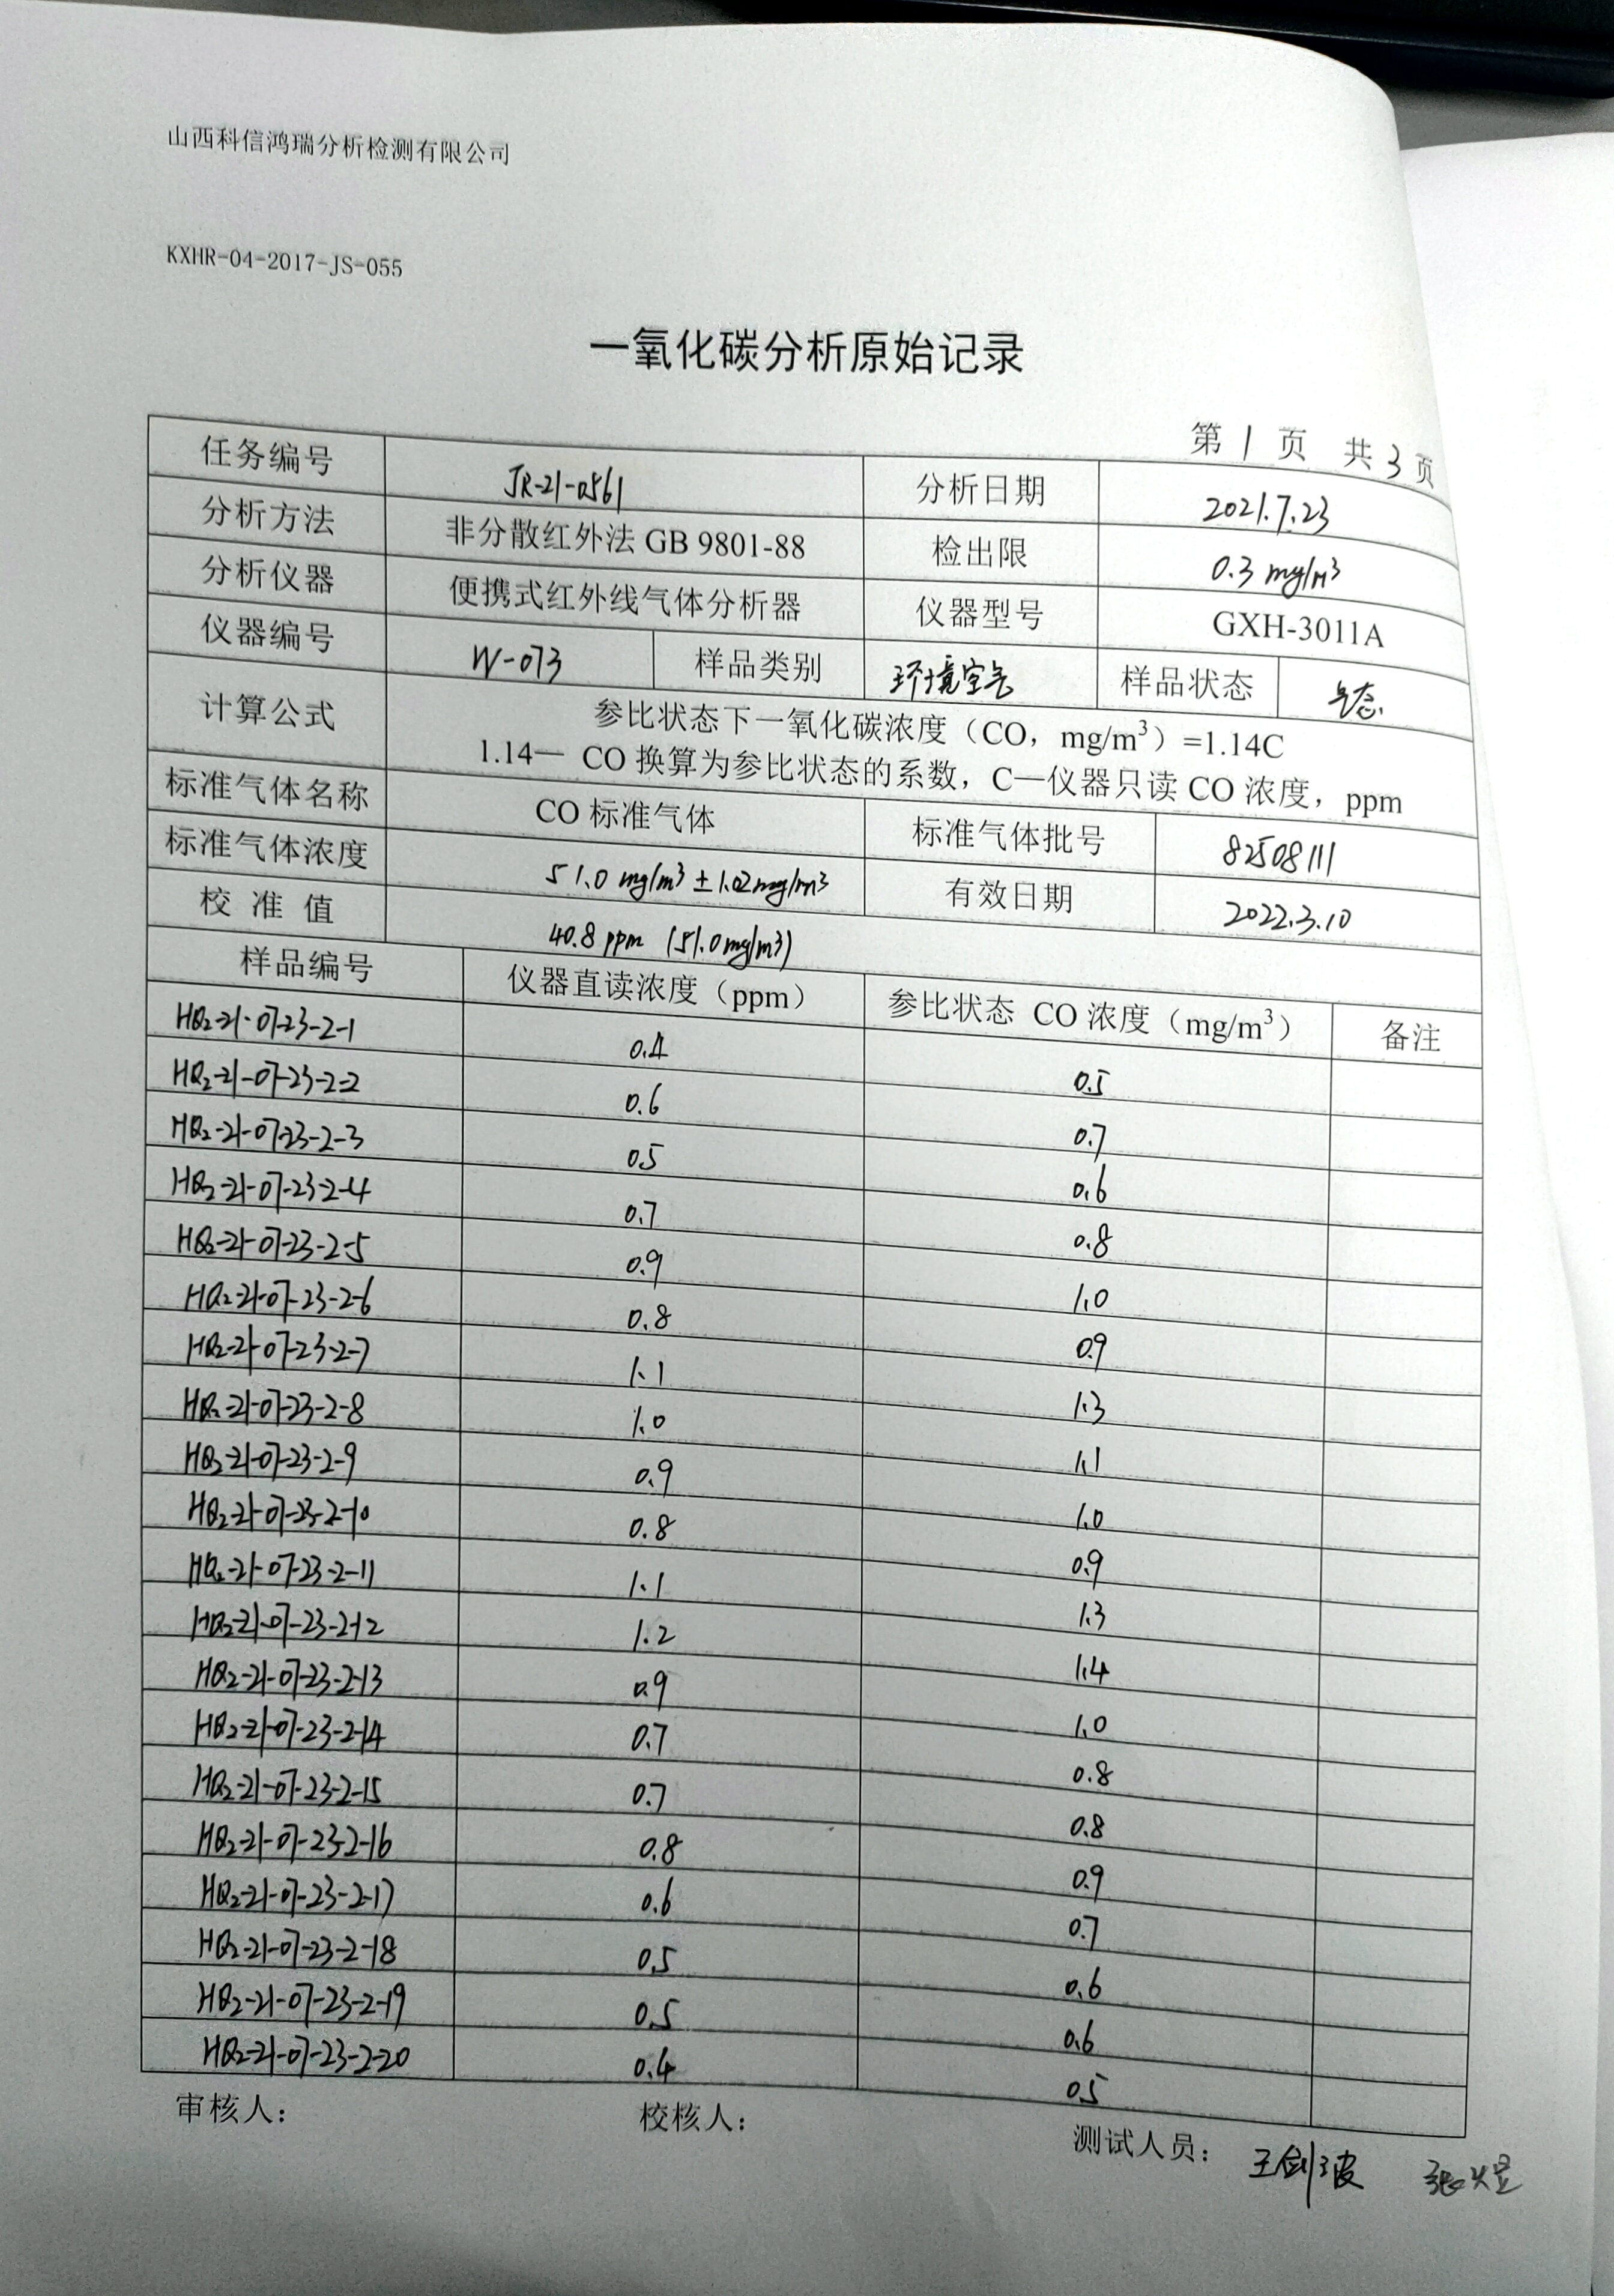 山西科信鸿瑞分析检测有限公司
KXHR-04-2017-JS-055
一氧化碳分析原始记录
第 1 页 共 3 页
任务编号 JR-21-0561 分析日期 2021.7.23
分析方法 非分散红外法 GB 9801-88 检出限 0.3 mg/m³
分析仪器 便携式红外线气体分析器 仪器型号 GXH-3011A
仪器编号 W-073 样品类别 环境空气 样品状态 气态
计算公式 参比状态下一氧化碳浓度（CO，mg/m³）=1.14C
1.14— CO 换算为参比状态的系数，C—仪器只读 CO 浓度，ppm
标准气体名称 CO 标准气体 标准气体批号 82508111
标准气体浓度 51.0 mg/m³ ± 1.02 mg/m³ 有效日期 2022.3.10
校 准 值 40.8 ppm (51.0 mg/m³)
样品编号 仪器直读浓度（ppm） 参比状态 CO 浓度（mg/m³） 备注
HQ2-21-07-23-2-1 0.4 0.5
HQ2-21-07-23-2-2 0.6 0.7
HQ2-21-07-23-2-3 0.5 0.6
HQ2-21-07-23-2-4 0.7 0.8
HQ2-21-07-23-2-5 0.9 1.0
HQ2-21-07-23-2-6 0.8 0.9
HQ2-21-07-23-2-7 1.1 1.3
HQ2-21-07-23-2-8 1.0 1.1
HQ2-21-07-23-2-9 0.9 1.0
HQ2-21-07-23-2-10 0.8 0.9
HQ2-21-07-23-2-11 1.1 1.3
HQ2-21-07-23-2-12 1.2 1.4
HQ2-21-07-23-2-13 0.9 1.0
HQ2-21-07-23-2-14 0.7 0.8
HQ2-21-07-23-2-15 0.7 0.8
HQ2-21-07-23-2-16 0.8 0.9
HQ2-21-07-23-2-17 0.6 0.7
HQ2-21-07-23-2-18 0.5 0.6
HQ2-21-07-23-2-19 0.5 0.6
HQ2-21-07-23-2-20 0.4 0.5
审核人： 校核人： 测试人员： 王剑波 张煜